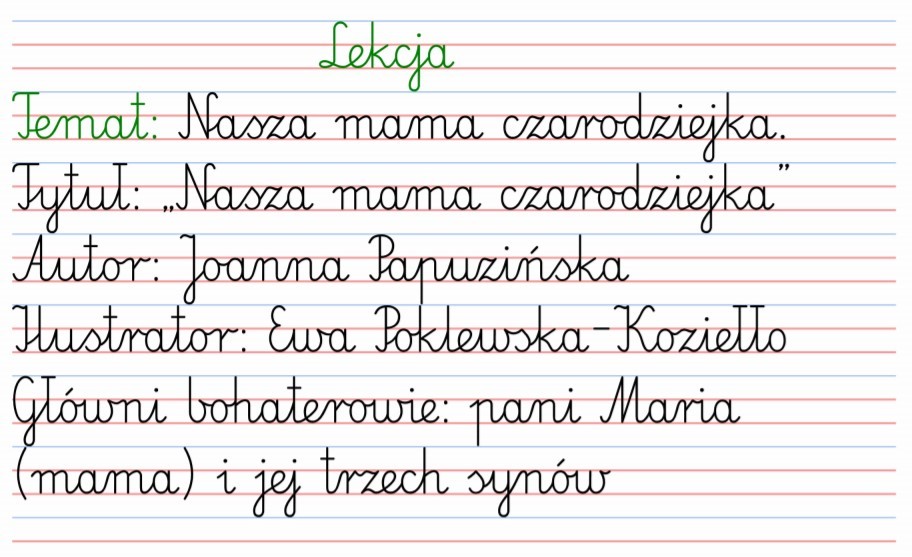 Lekcja
Temat: Nasza mama czarodziejka.
Tytuł: „Nasza mama czarodziejka”
Autor: Joanna Papuzińska
Ilustrator: Ewa Poklewska-Koziełło
Główni bohaterowie: pani Maria
(mama) i jej trzech synów